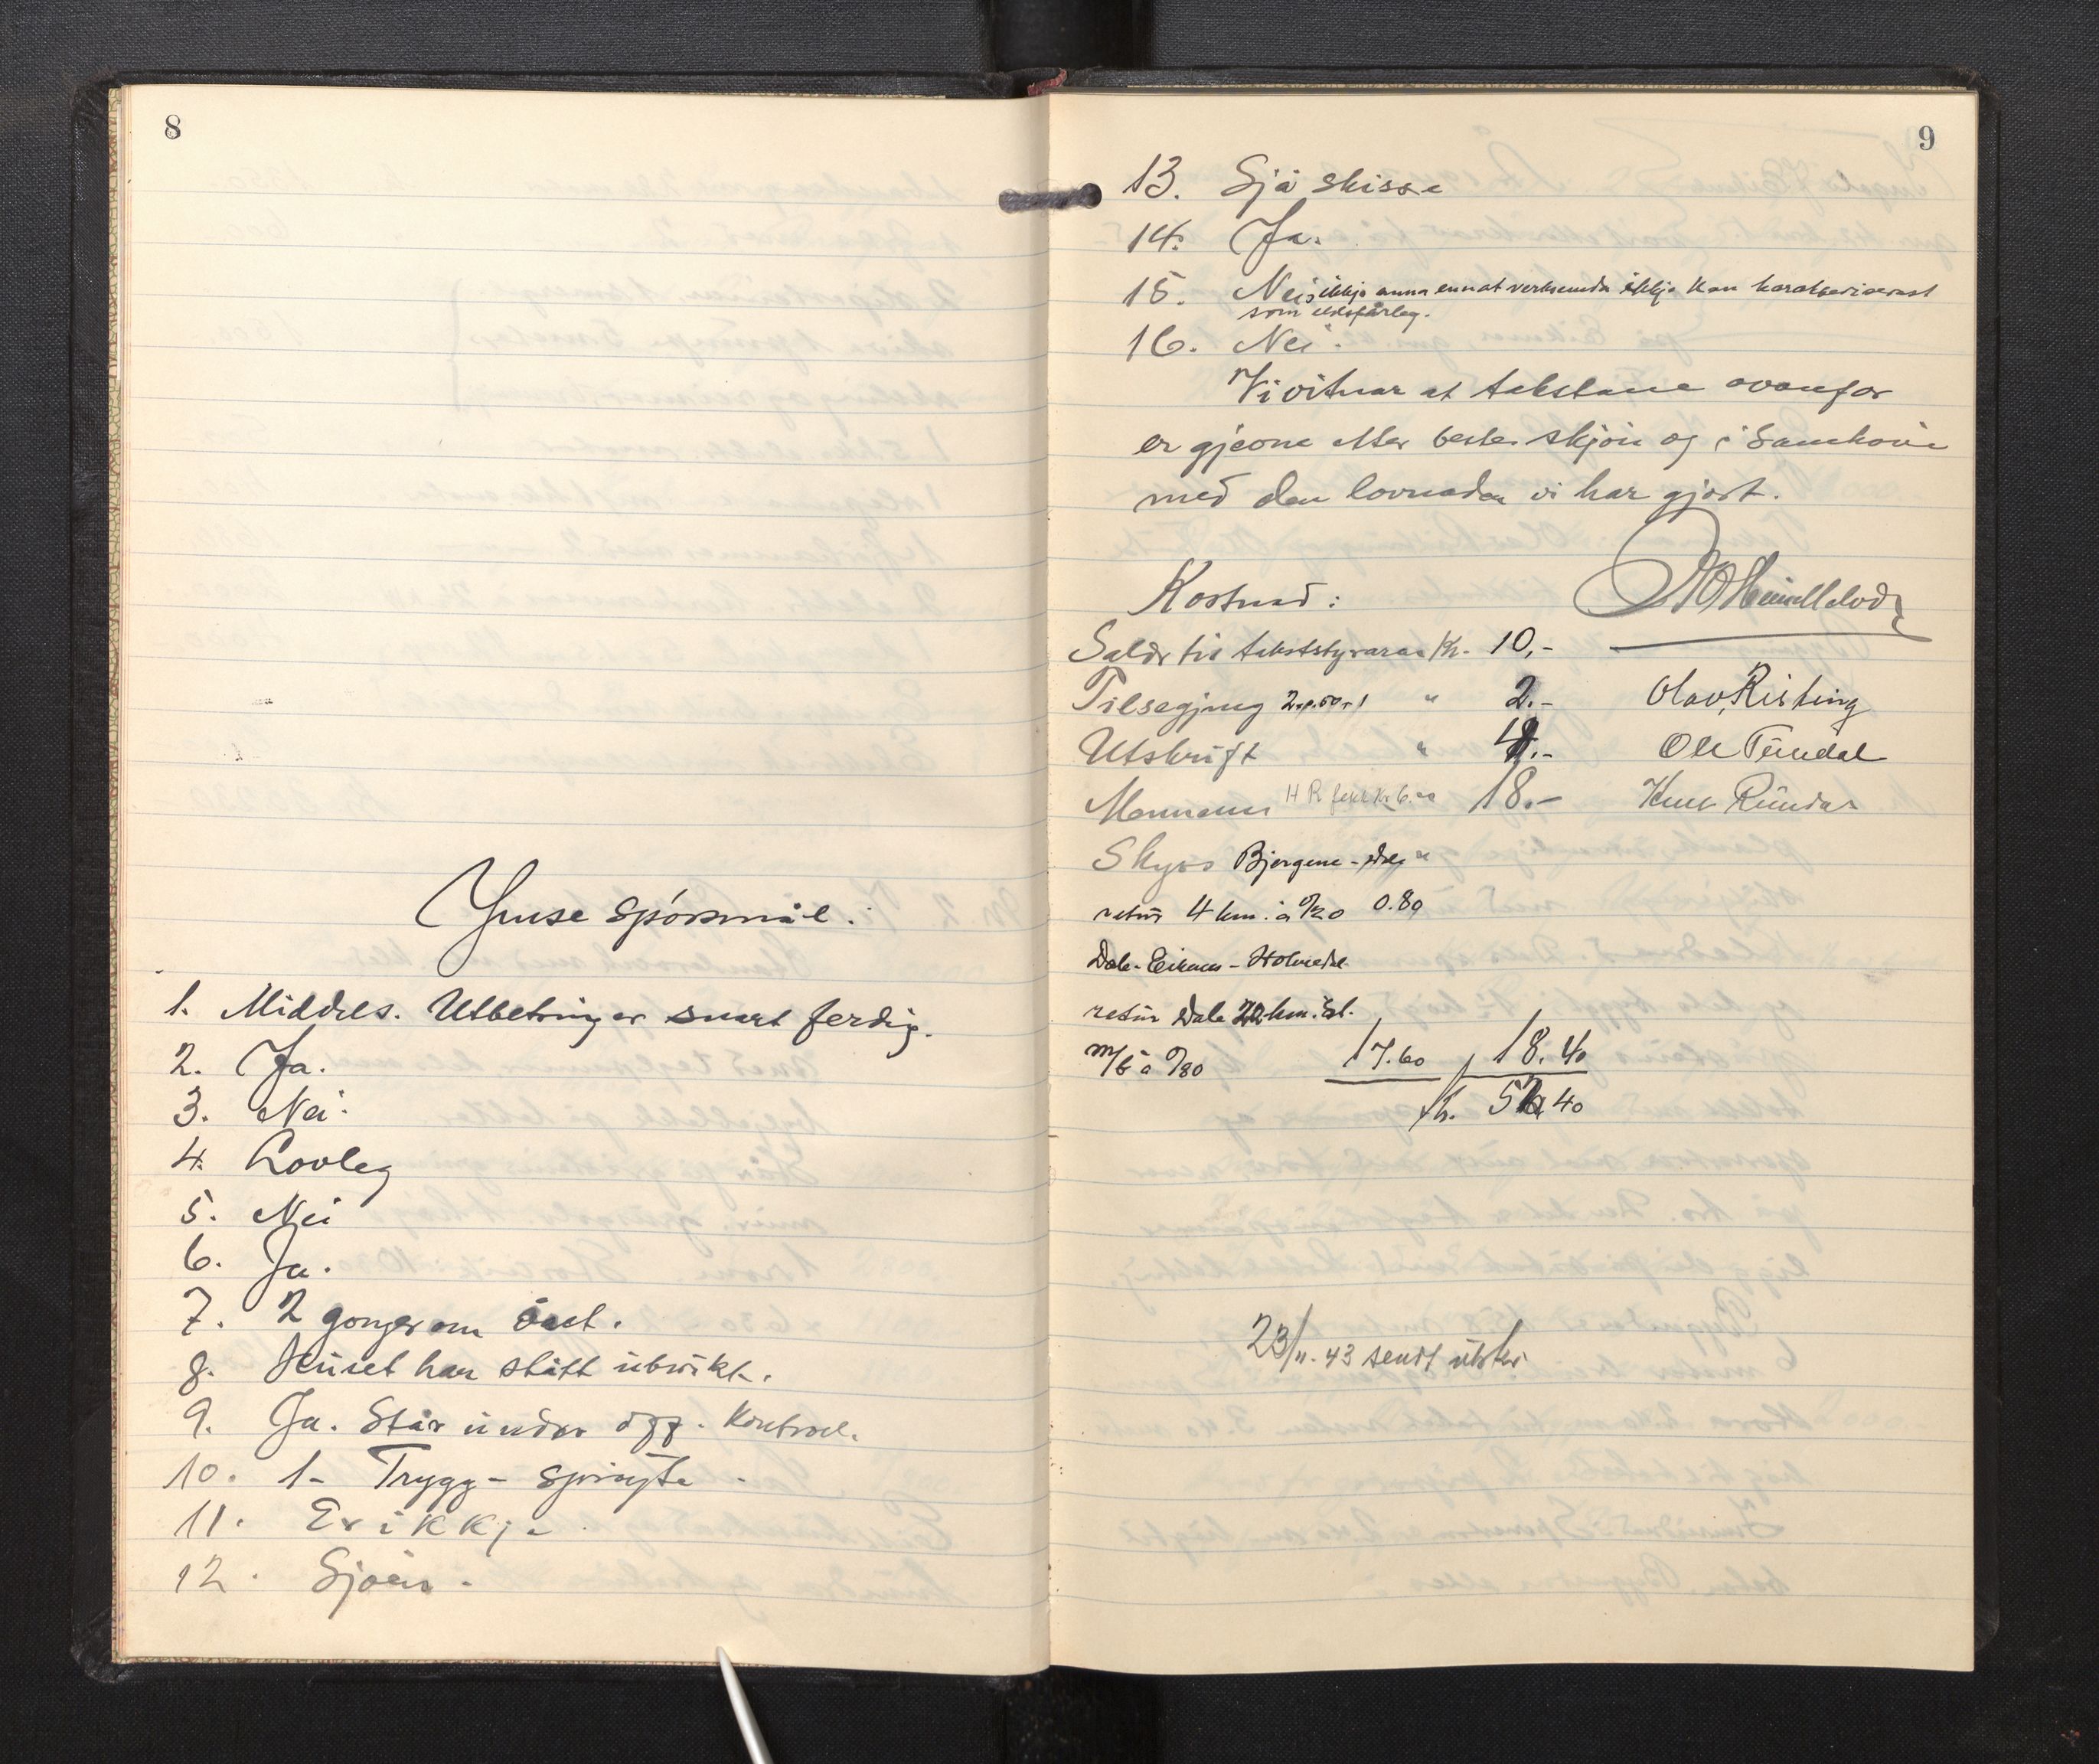 8
Ymse spörsmål:
1. Middels. Utbetring er snart ferdig.
2. Ja.
3. Nei.
4. Lovleg
5. Nei
6. Ja.
7. 2 gonger om året.
8. Huset har stått ubrukt.
9. Ja. Står under off. Kontroll.
10. 1- Trygg - spröyte -
11. Er ikkje
12. Sjöen.
9
13. Sjå skisse
14. Ja.
15. Nei, ikkje anna enn at verksemda ikkje kan karakteriserast
som eldsfårleg.
16. Nei.
Vi vitnar at takstane ovanfor
er gjevne etter beste skjön og i samhöve
med den lovnaden vi har gjort.
Kostnad:
Salær til takststyraren Kr. 10,-
Tilsegjing 2 " 2.-
Olav Risting
Utskrift " .-
Ole Tündal
Mennene 18.-
Knut Ründar
Skyss Bjergene - Dale "
retur 4 km. à 0/20 0.80
Dale - Eikenes - Holmedal
retur Dale 22 km.
m/b à 0/80 17.60 18.40
Kr. 40
23/11.43 sendt utskr.